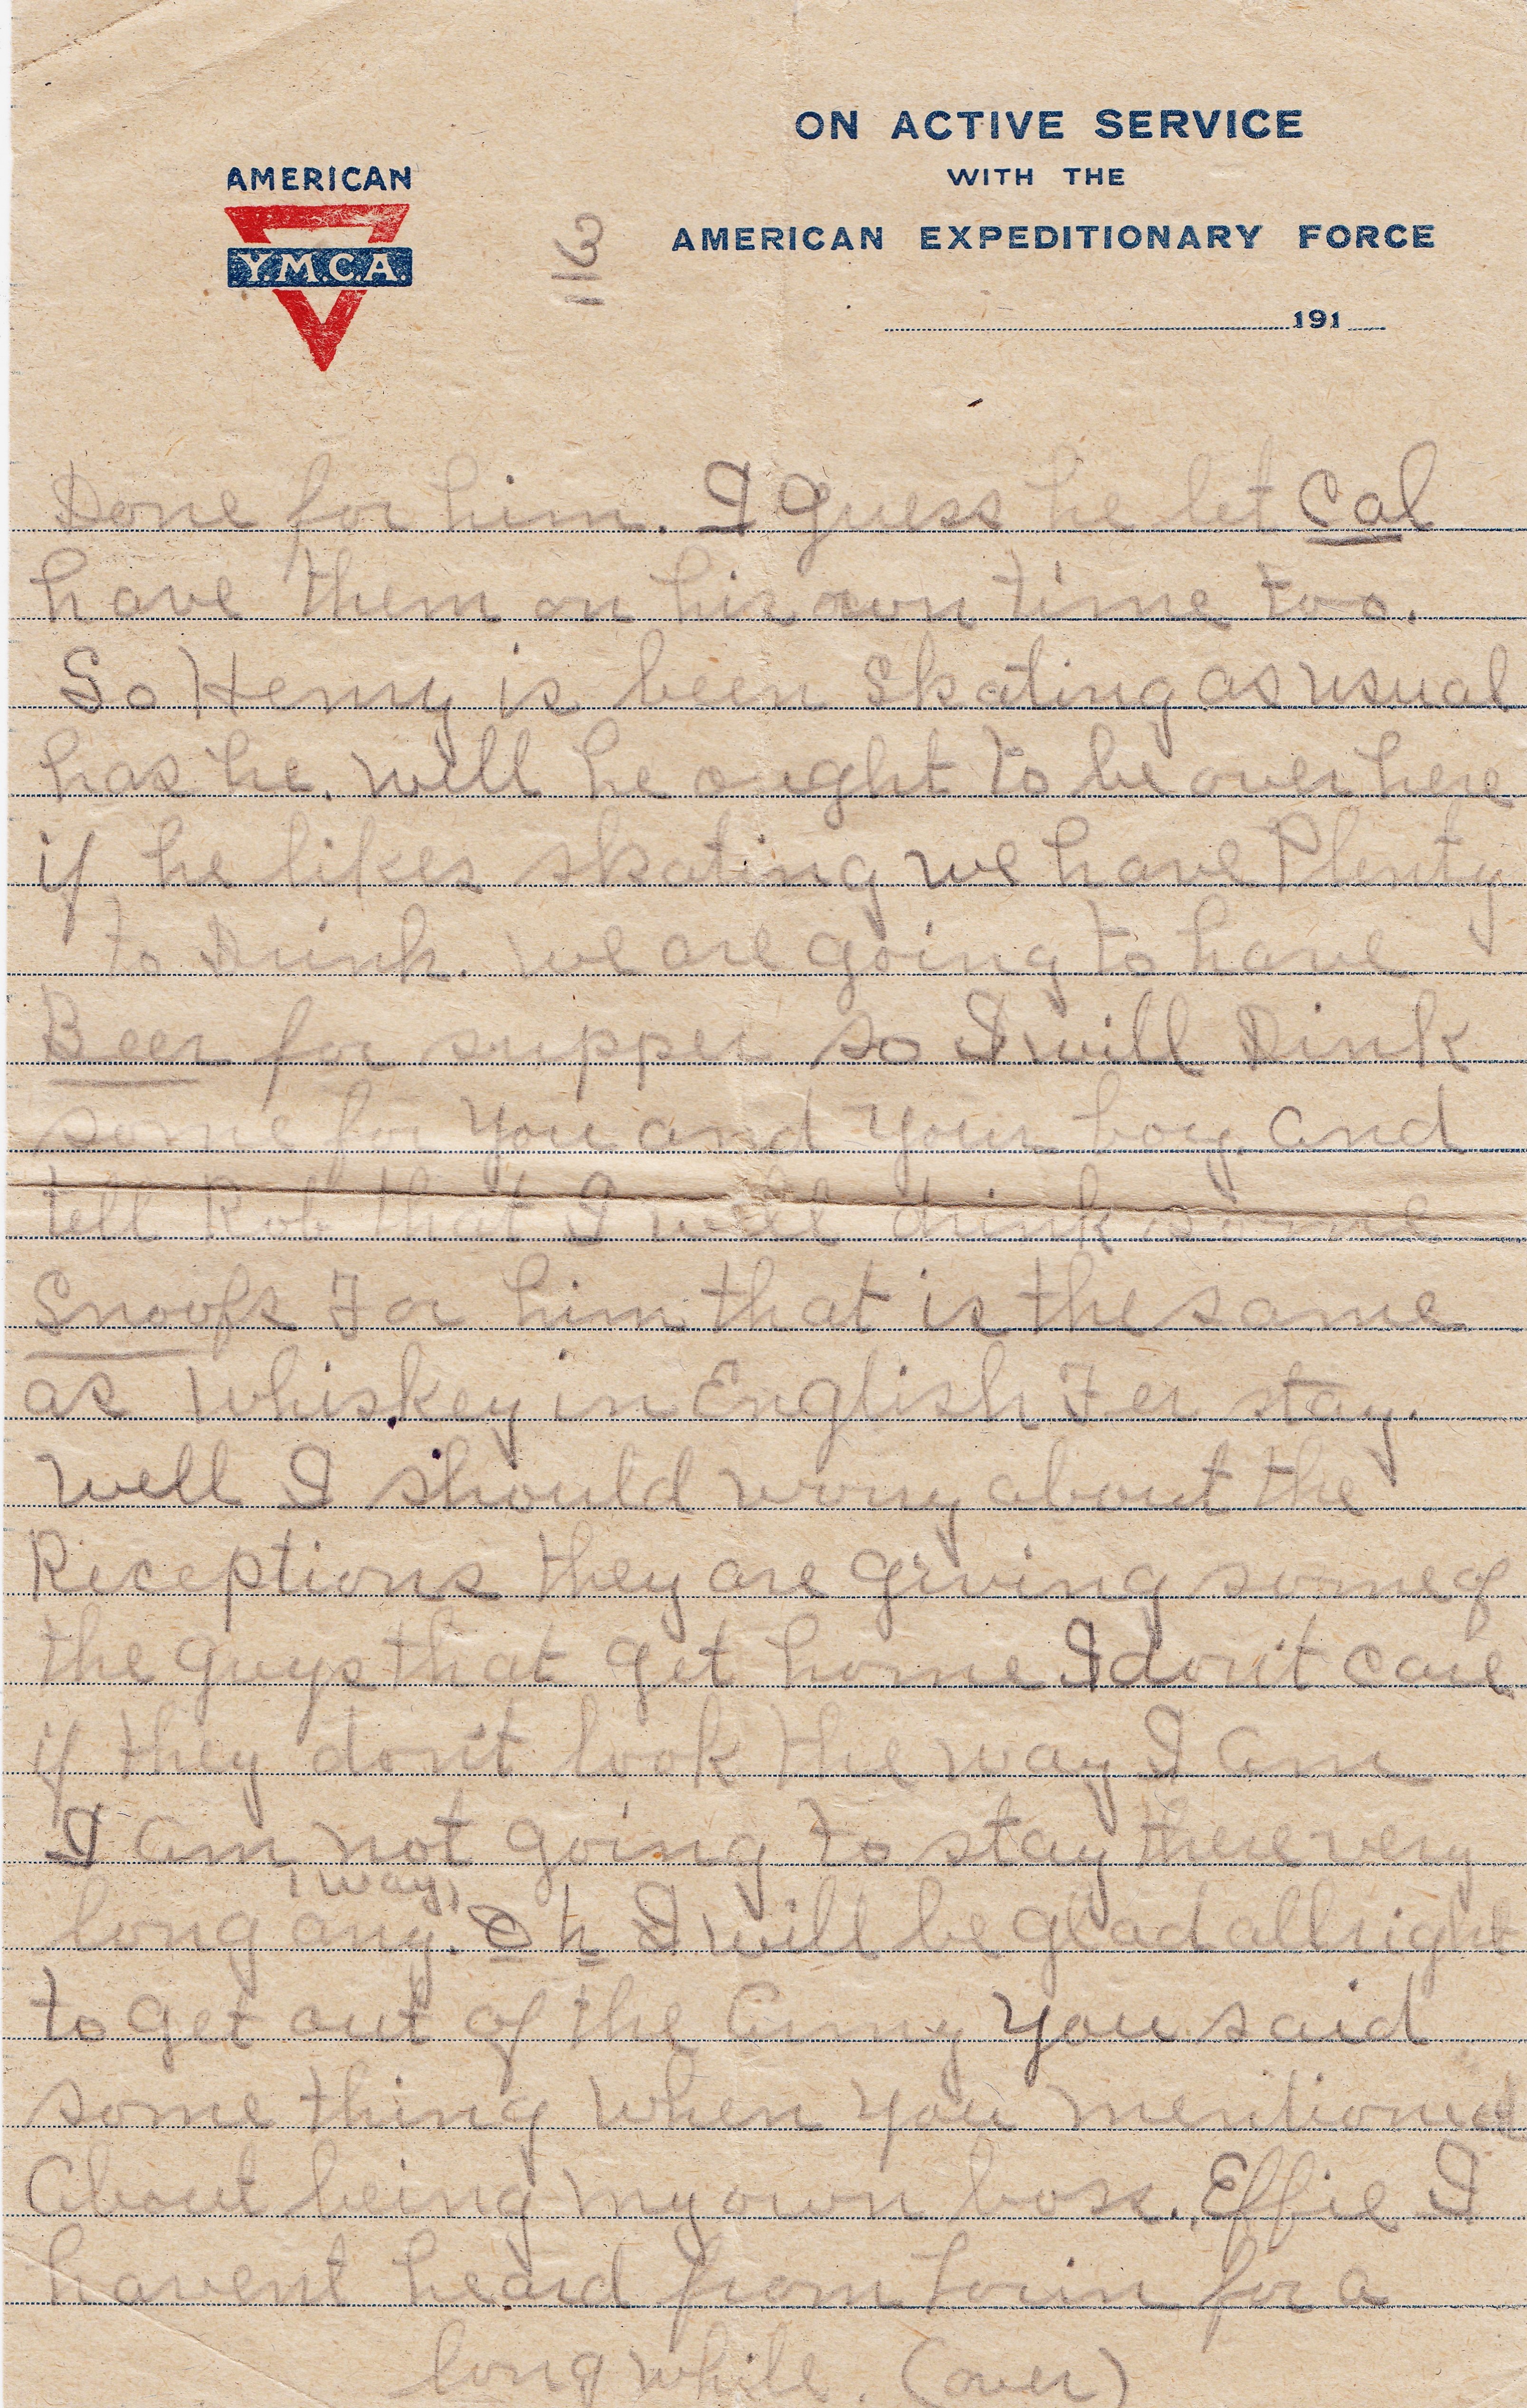 ON ACTIVE SERVICE
WITH THE
AMERICAN EXPEDITIONARY FORCE
AMERICAN
Y.M.C.A.
191
Done for him. I guess he let Cal
have them on his own time too.
So Henry is been Skating as usual
has he. Well he ought to be over here
if he likes skating we have Plenty
to Drink. We are going to have
Beer for supper so I will Dink
some for you and your boy. and
tell Rob that I will drink some
Snoofs For him that is the same
as Whiskey in English Fer stay.
Well I should worry about the
Receptions they are giving some of
the guys that get home I don't care
if they don't look the way I am
I am not going to stay there very
way
long any. Oh I will be glad allright
to get out of the Army you said
some thing when you mentioned
About being my own boss. Effie I
havent heard from for a
long while. (over)